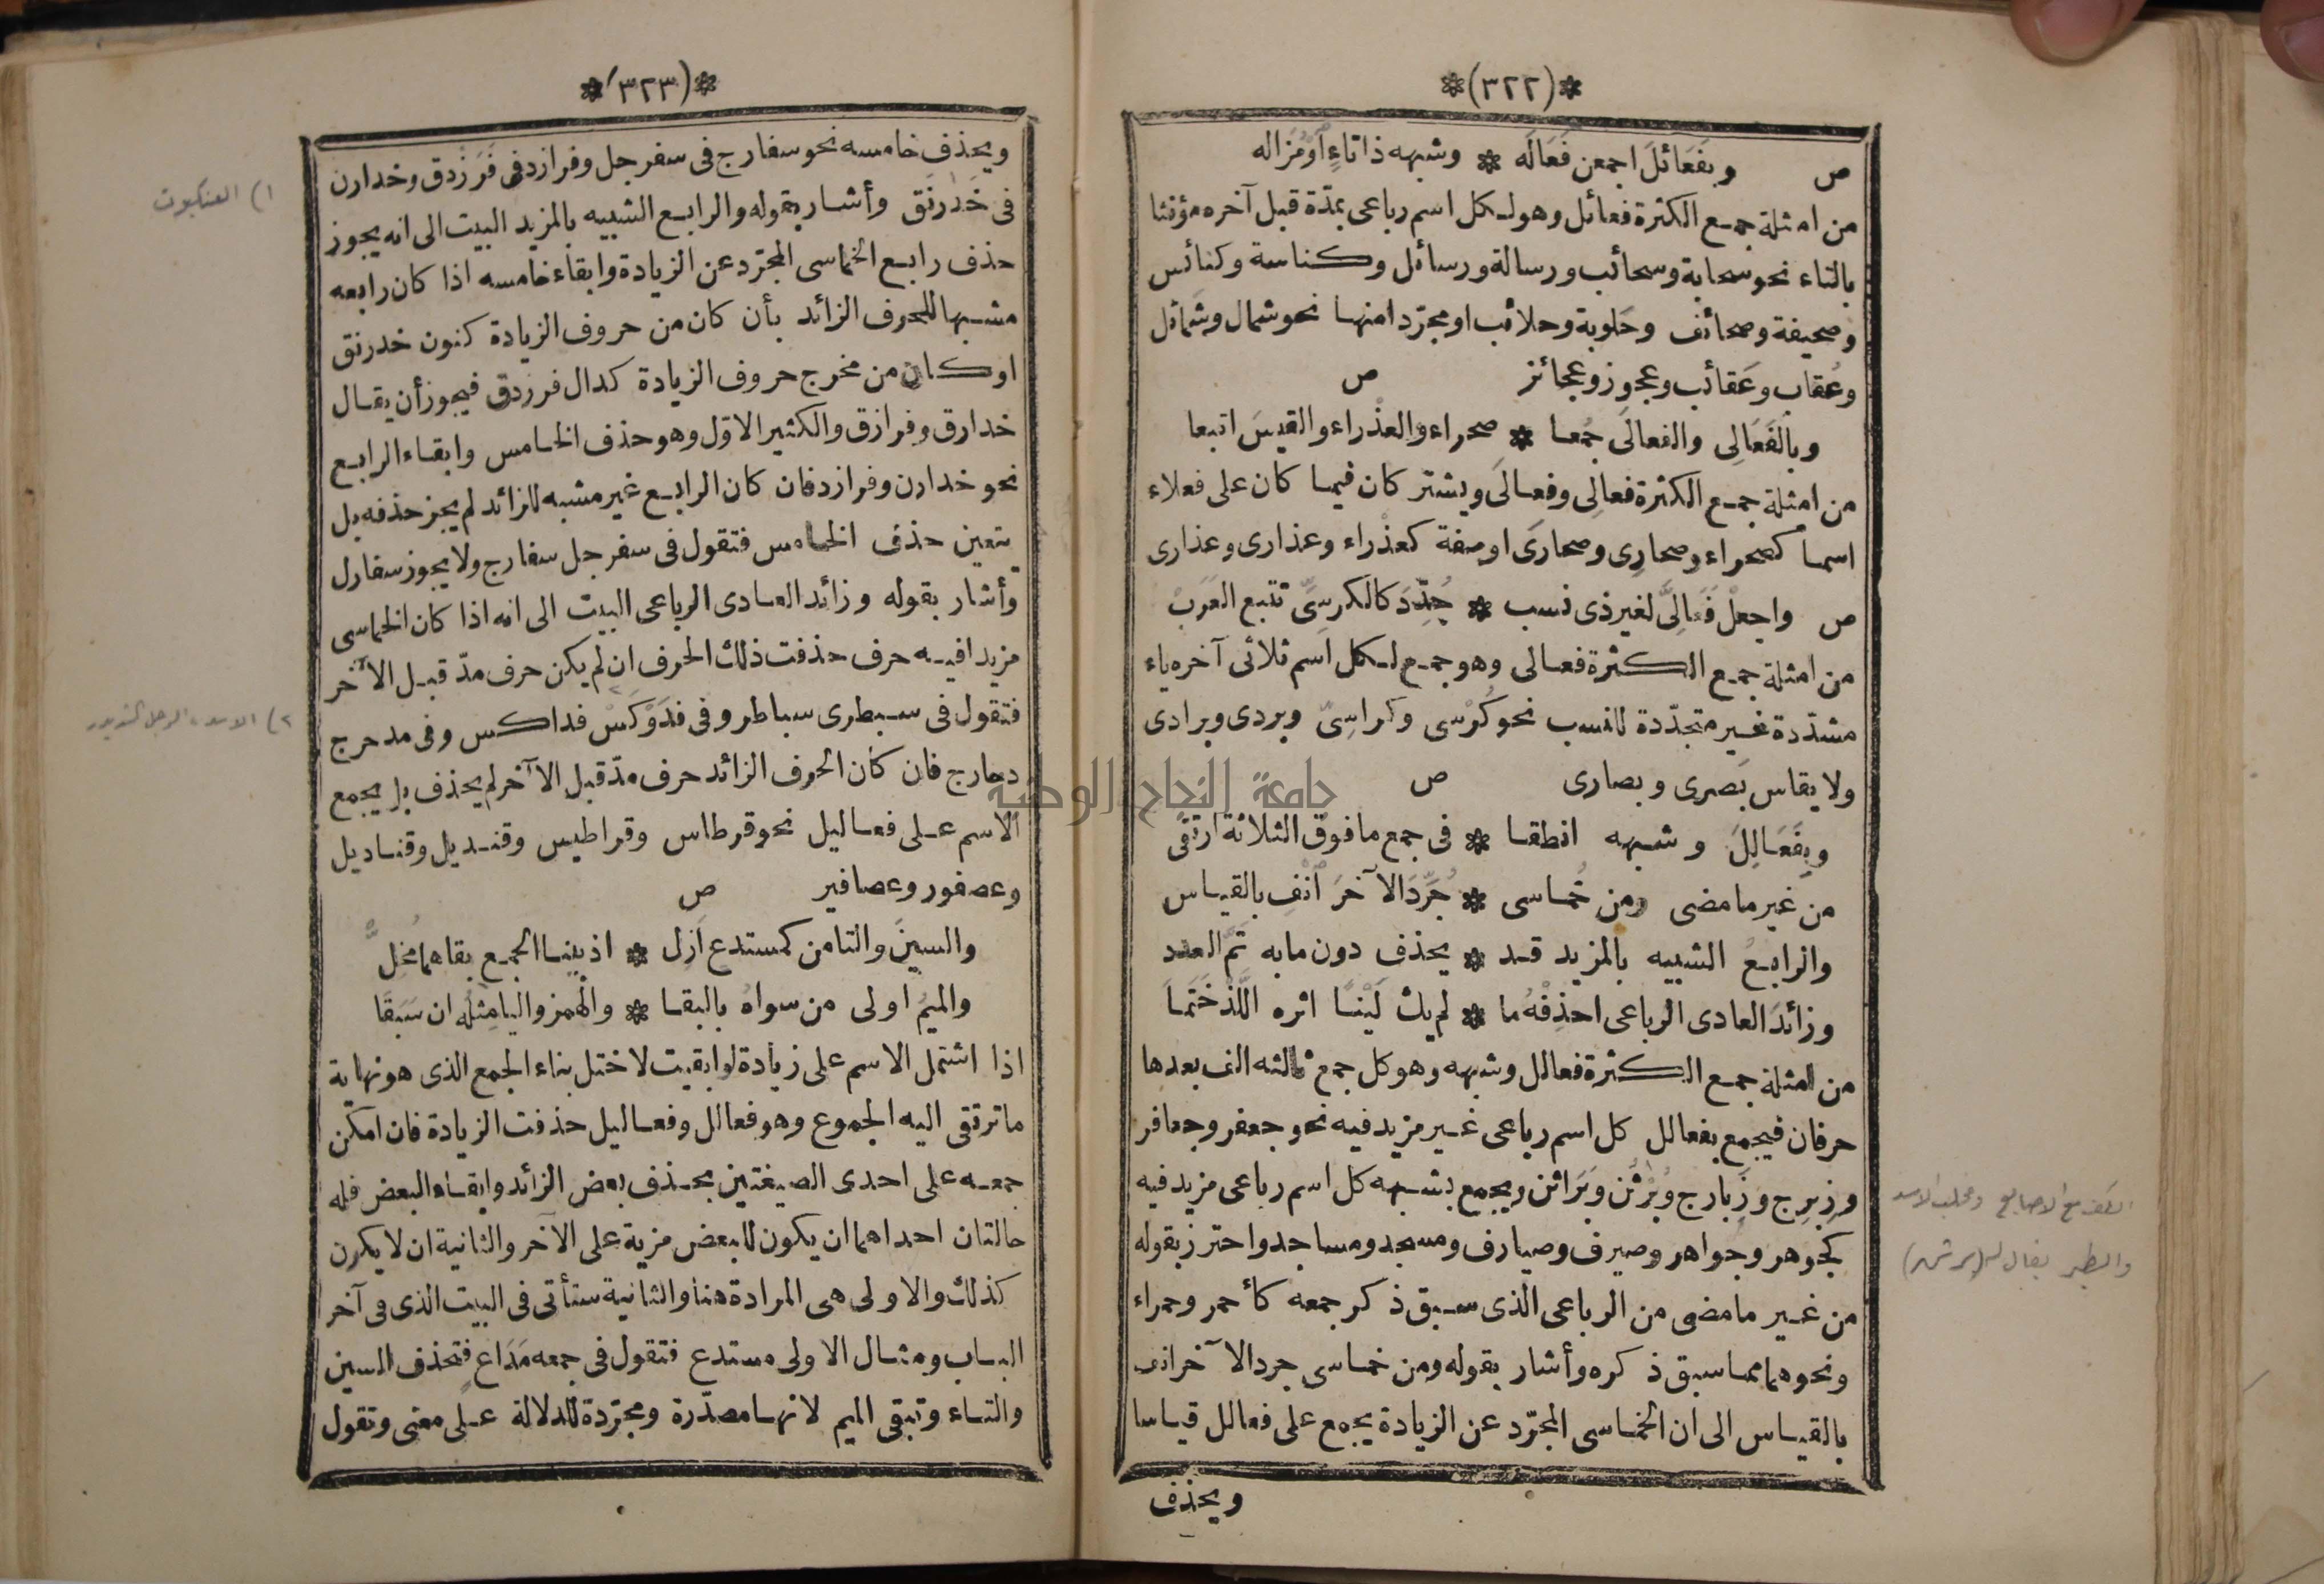 *(٣٢٢)*
ص وبفَعَائلَ اجمعن فَعَالَه * وشبهه ذاتاءٍ أوْ مُزاله
من امثلة جمع الكثرة فعائل وهو لكل اسم رباعى بمدّة قبل آخره مؤنثا
بالتاء نحو سحابة وسحائب ورسالة ورسائل وكناسة وكنائس
وصحيفة وصحائف وحَلوبة وحلائب او مجرّدا منها نحو شمال وشَمائل
وعُقاب وعَقائب وعجوز وعجائز ص
وبالفَعَالِى والفعالَى جُمعا * صحراء والعذْراء والقيسَ اتبعا
من امثلة جمع الكثرة فعالِى وفعالَى ويشتركان فيما كان على فعلاء
اسما كصحراء وصحارِى وصحارَى او صفة كعذْراء وعذارى وعذارى
ص واجعلْ فَعَالِىَّ لغير ذى نسب * جُدِّدَ كالكرسىِّ تتبع العَرَبْ
من امثلة جمع الكثرة فعالى وهو جمع لكل اسم ثلاثى آخره ياء
مشدّدة غير متجدّدة للنسب نحو كُرْسى وكراسِىّ وبردى وبرادى
ولا يقاس بَصرى وبصارى ص
وبِفَعَالِلَ وشبهه انطقا * فى جمع مافوق الثلاثة ارتقى
من غير مامضى ومن خُماسى * جُرِّدَ الآخرَ انْفِ بالقياس
والرابعُ الشبيه بالمزيد قد * يحذف دون مابه تَمَّ العدد
وزائدَ العادى الرباعى احذِفْهُ ما * لم يك لَيْنًا اثره اللَّذْ خَتَما
من امثلة جمع الكثرة فعالل وشبهه وهو كل جمع ثالثه الف بعدها
حرفان فيجمع بفعالل كل اسم رباعى غير مزيد فيه نحو جعفر وجعافر
وزِبرِج وزَبارج وبُرْثُن وبَرَاثن ويجمع بشبهه كل اسم رباعى مزيد فيه
كجوهر وجواهر وصيرف وصيارف ومسجد ومساجد واحترز بقوله
من غير مامضى من الرباعى الذى سبق ذكر جمعه كأحمر وحمراء
ونحوهما مما سبق ذكره وأشار بقوله ومن خماسى جرد الآخر انف
بالقياس الى ان الخماسى المجرّد عن الزيادة يجمع على فعالل قياسا
ويحذف
الكف مع الاصابع ومخلب الاسد
والطير يقال له (برثن)
*(٣٢٣)*
ويحذف خامسه نحو سفارج فى سفرجل وفرازد فى فَرَزْدق وخدارن
فى خَدَرنَق وأشار بقوله والرابع الشبيه بالمزيد البيت الى انه يجوز
حذف رابع الخماسى المجرّد عن الزيادة وابقاء خامسه اذا كان رابعه
مشبها للحرف الزائد بأن كان من حروف الزيادة كنون خدرنق
او كان من مخرج حروف الزيادة كدال فرزدق فيجوز أن يقال
خدارق وفرازق والكثير الاوّل وهو حذف الخامس وابقاء الرابع
نحو خدارن وفرازد فان كان الرابع غير مشبه للزائد لم يجز حذفه بل
يتعين حذف الخامس فتقول فى سفرجل سفارج ولا يجوز سفارل
وأشار بقوله وزائد العادى الرباعى البيت الى انه اذا كان الخماسى
مزيدا فيه حرف حذفت ذلك الحرف ان لم يكن حرف مدّ قبل الآخر
فتقول فى سبطرى سباطر وفى فَدَوْكَسْ فداكس وفى مدحرج
دحارج فان كان الحرف الزائد حرف مدّ قبل الآخر لم يحذف بل يجمع
الاسم على فعاليل نحو قرطاس وقراطيس وقنديل وقناديل
وعصفور وعصافير ص
والسينَ والتا من كمستدع أزل * اذ ببنا الجمع بقاهما مُخلّ
والميمُ اولى من سواهُ بالبقا * والهمز واليا مثلُه ان سَبَقَا
اذا اشتمل الاسم على زيادة لو ابقيت لاختل بناء الجمع الذى هو نهاية
ما ترتقى اليه الجموع وهو فعالل وفعاليل حذفت الزيادة فان امكن
جمعه على احدى الصيغتين بحذف بعض الزائد وابقاء البعض فله
حالتان احداهما ان يكون للبعض مزية على الآخر والثانية ان لا يكون
كذلك والاولى هى المرادة هنا والثانية ستأتى فى البيت الذى فى آخر
الباب ومثال الاولى مستدع فتقول فى جمعه مَدَاع فتحذف السين
والتاء وتبقى الميم لانها مصدّرة ومجرّدة للدلالة على معنى وتقول
١) العنكبوت
٢) الاسد، الرجل الشديد
جامعة النجاح الوطنية